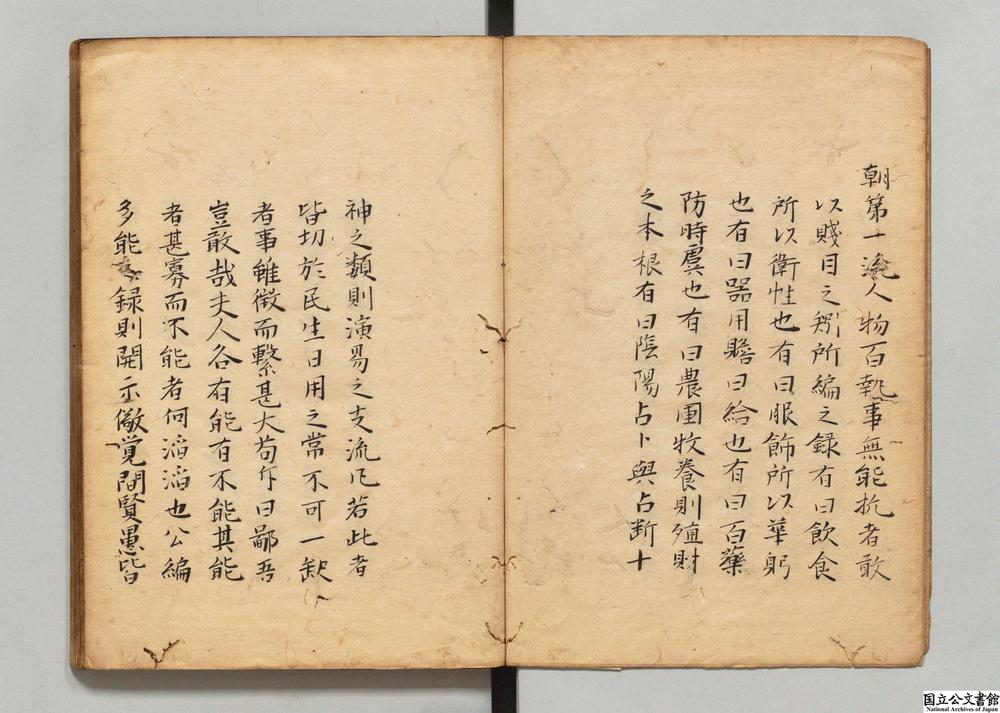 朝第一流人物百執事無能抗者敢
以賤目之矧所編之録有曰飲食
所以衛性也有曰服飾所以華躬
也有曰器用贍曰給也有曰百藥
防時虞也有曰農圃牧養則殖財
之本根有曰陰陽占卜與占断十
神之類則演易之支流凡若此者
皆切於民生日用之常不可一缺
者事雖微而繫甚大苟斥曰鄙吾
豈敢哉夫人各有能有不能其能
者甚寡而不能者何滔滔也公編
多能録則開示儆覚間賢愚皆
国立公文書館
National Archives of Japan